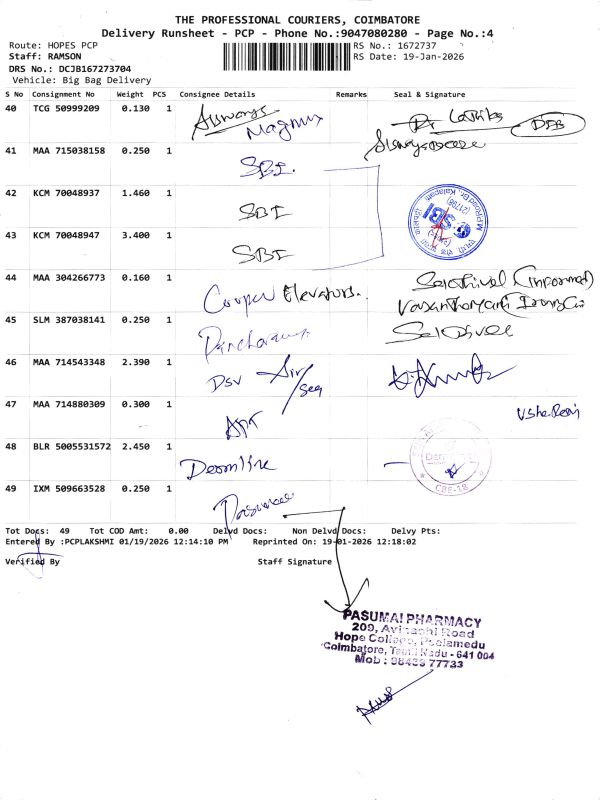 THE PROFESSIONAL COURIERS, COIMBATORE
Delivery Runsheet - PCP - Phone No.:9047080280 - Page No.:4
Route: HOPES PCP
RS No.: 1672737
Staff: RAMSON
RS Date: 19-Jan-2026
DRS No.: DCJB167273704
Vehicle: Big Bag Delivery
S No Consignment No Weight PCS Consignee Details Remarks Seal & Signature
40 TCG 50999209 0.130 1
Magnus
41 MAA 715038158 0.250 1 SBI.
42 KCM 70048937 1.460 1 SBI
SBI
43 KCM 70048947 3.400 1 SBI
44 MAA 304266773 0.160 1 Cooper Elevators.
(informed)
45 SLM 387038141 0.250 1
46 MAA 714543348 2.390 1 DSV Air/Sea
47 MAA 714880309 0.300 1
48 BLR 5005531572 2.450 1
CBE-18
49 IXM 509663528 0.250 1
Tot Docs: 49 Tot COD Amt: 0.00 Delvd Docs: Non Delvd Docs: Delvy Pts:
Entered By :PCPLAKSHMI 01/19/2026 12:14:10 PM Reprinted On: 19-01-2026 12:18:02
Verified By Staff Signature
PASUMAI PHARMACY
209, Avinashi Road
Hope College, Peelamedu
Coimbatore, Tamil Nadu - 641 004
Mob : 77733